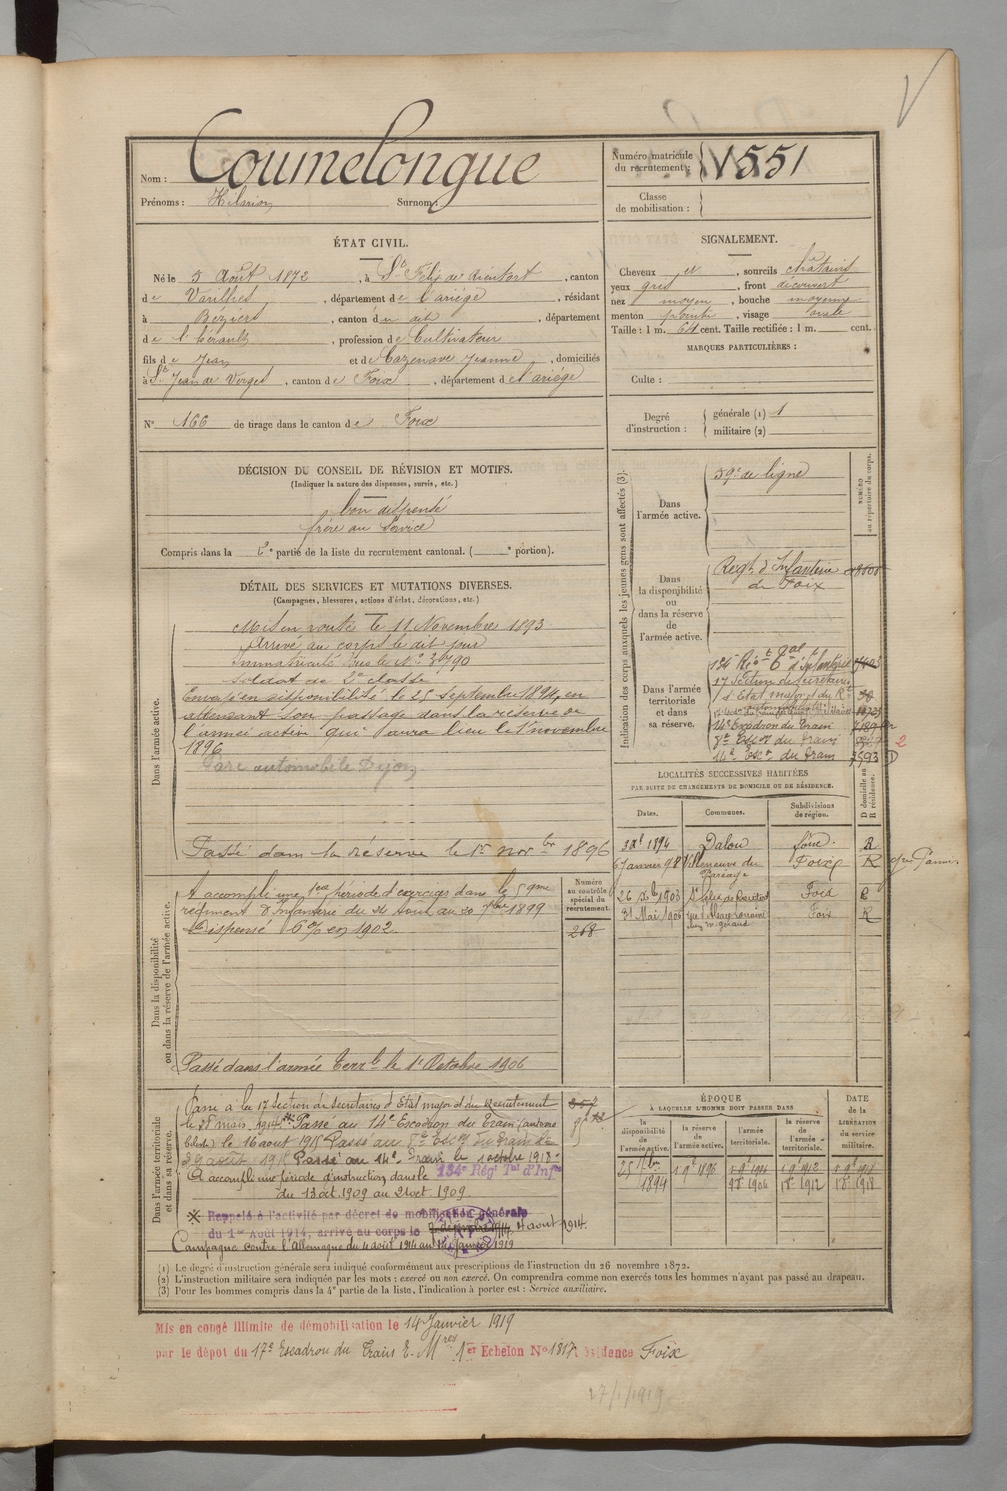 Nom : Coumelongue
Prénoms : Hilarion Surnom :
Numéro matricule du recrutement : 551
Classe de mobilisation :
ÉTAT CIVIL.
Né le 5 Août 1872, à St Félix de Rieutort, canton
de Varilhes, département de l'ariège, résidant
à Béziers, canton du dit, département
de l'hérault, profession de Cultivateur
fils de Jean et de Cazenave Jeanne, domiciliés
à St Jean de Verges, canton de Foix, département de l'ariège
N° 166 de tirage dans le canton de Foix
SIGNALEMENT.
Cheveux et, sourcils châtains
yeux gris, front découvert
nez moyen, bouche moyenne
menton pointu, visage ovale
Taille : 1 m. 64 cent. Taille rectifiée : 1 m. cent.
MARQUES PARTICULIÈRES :
Culte :
Degré d'instruction : générale (1) 1
militaire (2)
DÉCISION DU CONSEIL DE RÉVISION ET MOTIFS.
(Indiquer la nature des dispenses, survis, etc.)
bon dispensé
frère au Service
Compris dans la 2e partie de la liste du recrutement cantonal. ( e portion).
DÉTAIL DES SERVICES ET MUTATIONS DIVERSES.
(Campagnes, blessures, actions d'éclat, décorations, etc.)
Dans l'armée active.
Mis en route le 11 Novembre 1893
Arrivé au corps le dit jour
Immatriculé sous le N° 3690
Soldat de 2e classe
Envoyé en disponibilité le 25 Septembre 1894, en
attendant son passage dans la réserve de
l'armée active qui aura lieu le 1er novembre
1896
Parc automobile Dijon
Passé dans la réserve le 1er novbre 1896
Dans la disponibilité ou dans la réserve de l'armée active.
A accompli une 1ère période d'exercices dans le 59me
régiment d'Infanterie du 24 Août au 20 7bre 1899
Dispensé 6% en 1902
Passé dans l'armée terrle le 1er Octobre 1906
Numéro au contrôle spécial du recrutement.
268
Dans l'armée territoriale et dans sa réserve.
Passé à la 17 Section de Secrétaires d'Etat major et du recrutement
le 28 mars 1914. Passé au 14e Escadron du Train (automo
biliste) le 16 août 1915 Passé au 8e Escon du Train le
29 août 1918 Passé au 14e Train le 1 octobre 1918
A accompli une période d'instruction dans le 134e Régt Tal d'Infie
du 13 oct. 1909 au 21 oct. 1909.
Rappelé à l'activité par décret de mobilisation générale
du 1er Août 1914, arrivé au corps le 4 août 1914.
Campagne contre l'Allemagne du 4 août 1914 au 14 Janvier 1919
Indication des corps auxquels les jeunes gens sont affectés (3).
NUMÉRO au répertoire du corps.
Dans l'armée active.
59e de ligne
Dans la disponibilité ou dans la réserve de l'armée active.
Regt d'Infanterie
de Foix
Dans l'armée territoriale et dans sa réserve.
134e Régt Tal d'Infanterie
17 Section de Secrétaires
d'Etat major et du Rt
14e Escadron du Train
8e Escon du Train
14e Escon du Train 7593
LOCALITÉS SUCCESSIVES HABITÉES
PAR SUITE DE CHANGEMENTS DE DOMICILE OU DE RÉSIDENCE.
Dates. Communes. Subdivisions de région. D domicile au R résidence.
3 Xbre 1894 Dalou Foix R
6 Janvier 98 Villeneuve du Paréage Foix R
26 Xbre 1903 St Félix de Rieutort Foix R
31 Mai 1906 Foix R
ÉPOQUE
À LAQUELLE L'HOMME DOIT PASSER DANS
la disponibilité de l'armée active. la réserve de l'armée active. l'armée territoriale. la réserve de l'armée territoriale.
DATE de la LIBÉRATION du service militaire.
25 7bre 1894
(1) Le degré d'instruction générale sera indiqué conformément aux prescriptions de l'instruction du 26 novembre 1872.
(2) L'instruction militaire sera indiquée par les mots : exercé ou non exercé. On comprendra comme non exercés tous les hommes n'ayant pas passé au drapeau.
(3) Pour les hommes compris dans la 4e partie de la liste, l'indication à porter est : Service auxiliaire.
Mis en congé illimité de démobilisation le 14 Janvier 1919
par le dépôt du 17e Escadron du Train E. Mres 1er Echelon N° 1817 résidence Foix
27/1/1919